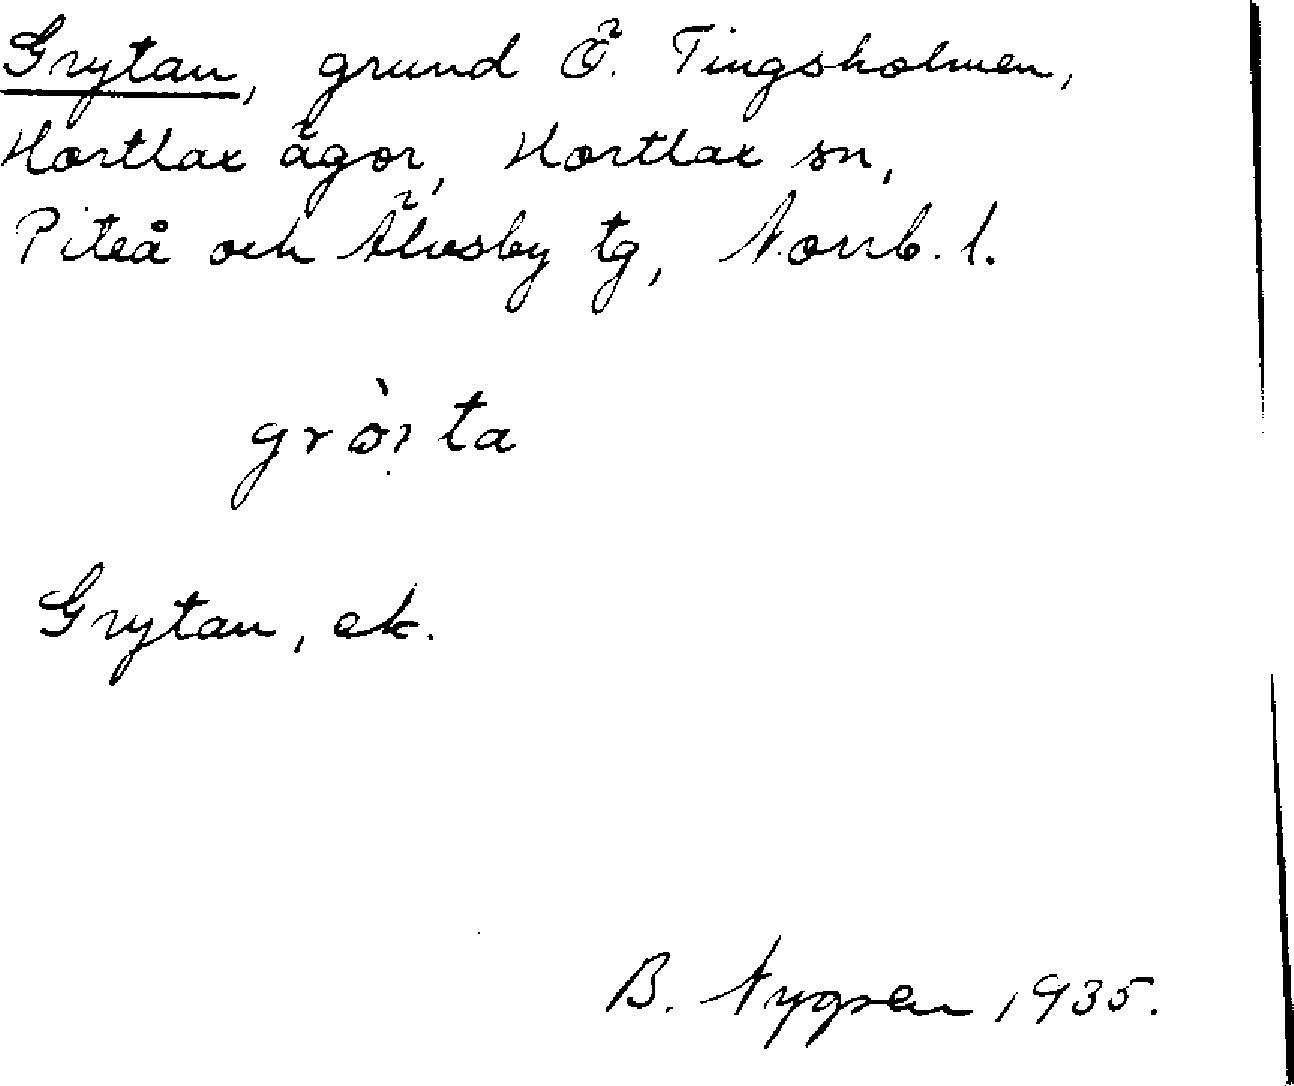 Grytan, grund Ö. Tingsholmen,
Hortlax ägor, Hortlax sn,
Piteå och Älvsby tg, Norrb. l.
Grytan, ek.
B. Nygren 1935.